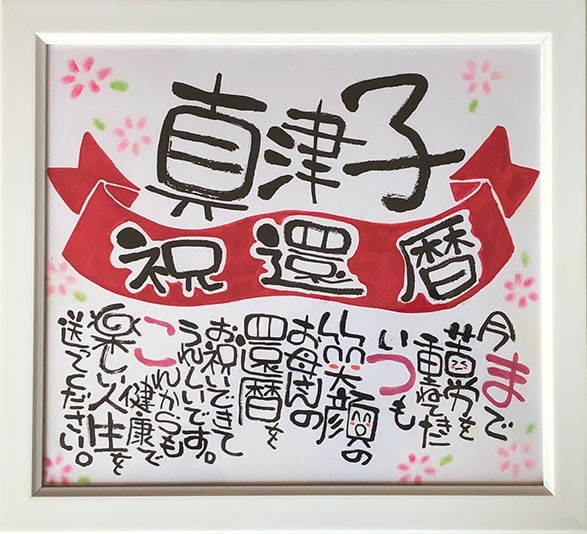 真津子
祝還暦
今まで
苦労を
重ねてきた
いつも
笑顔の
お母さんの
還暦を
お祝いできて
うれしいです。
これからも
健康で
楽しい人生を
送ってください。